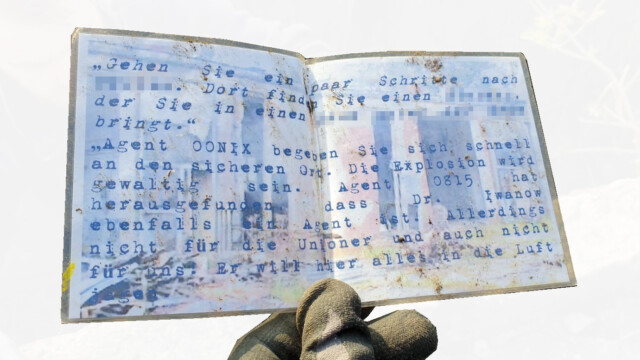 „Gehen Sie ein paar Schritte nach
Dort finden Sie einen
der Sie in einen
bringt.“
„Agent OONIX begeben Sie sich schnell
an den sicheren Ort. Die Explosion wird
gewaltig sein. Agent 0815 hat
herausgefunden dass Dr. Iwanow
ebenfalls ein Agent ist. Allerdings
nicht für die Unioner und auch nicht
für uns. Er will hier alles in die Luft
jagen